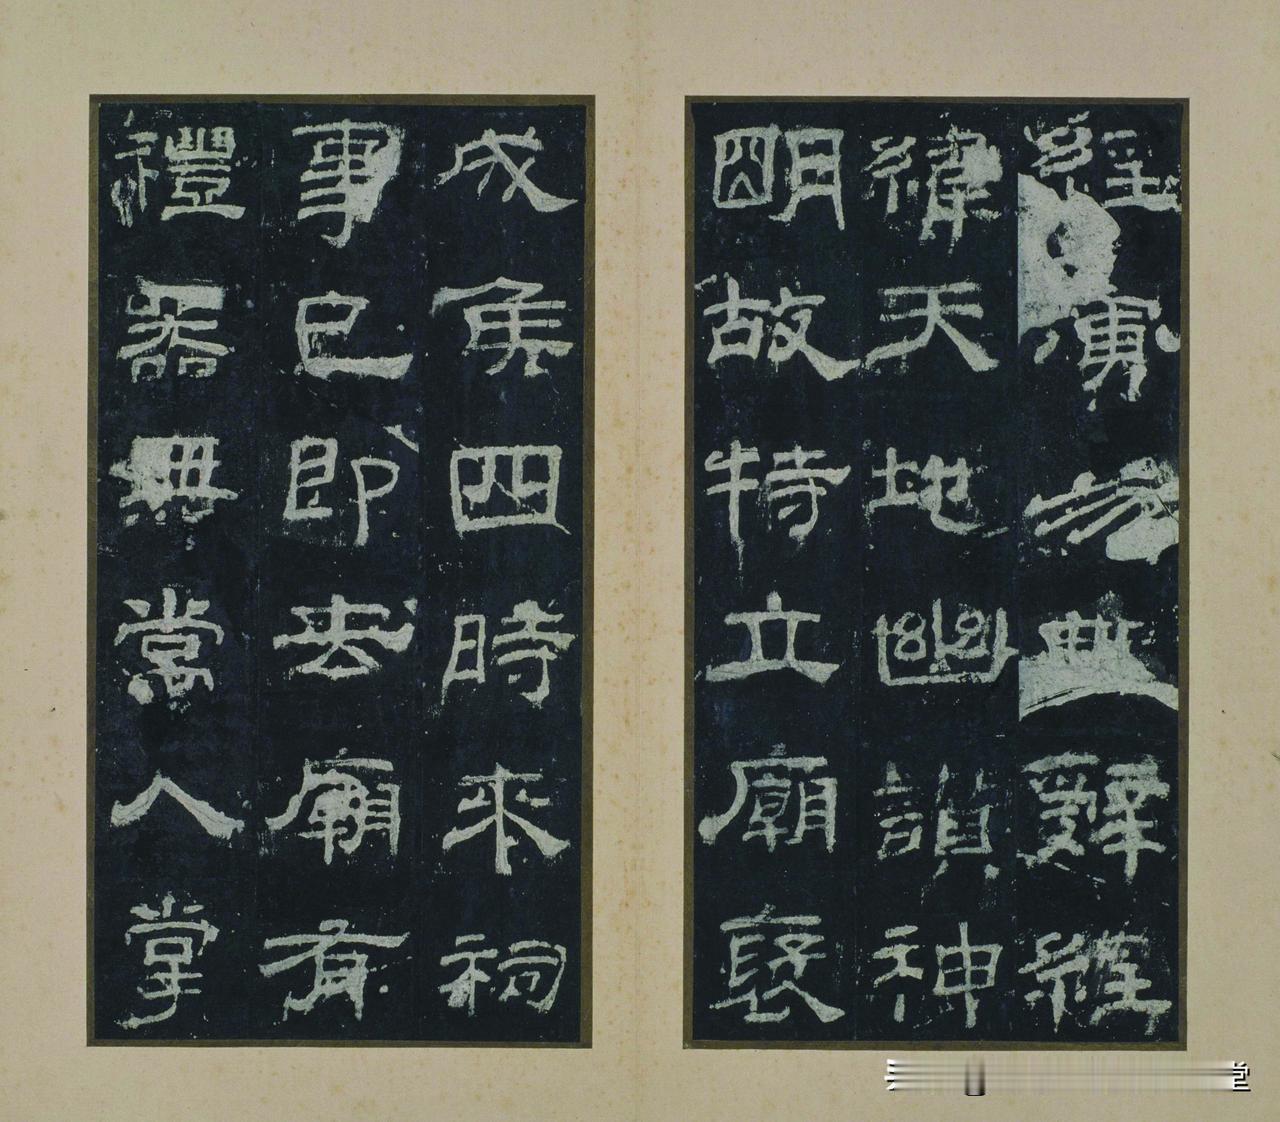 經演易辭經
緯天地幽讃神
明故特立廟褒
成侯四時來祠
事已即去廟有
禮器無常人掌